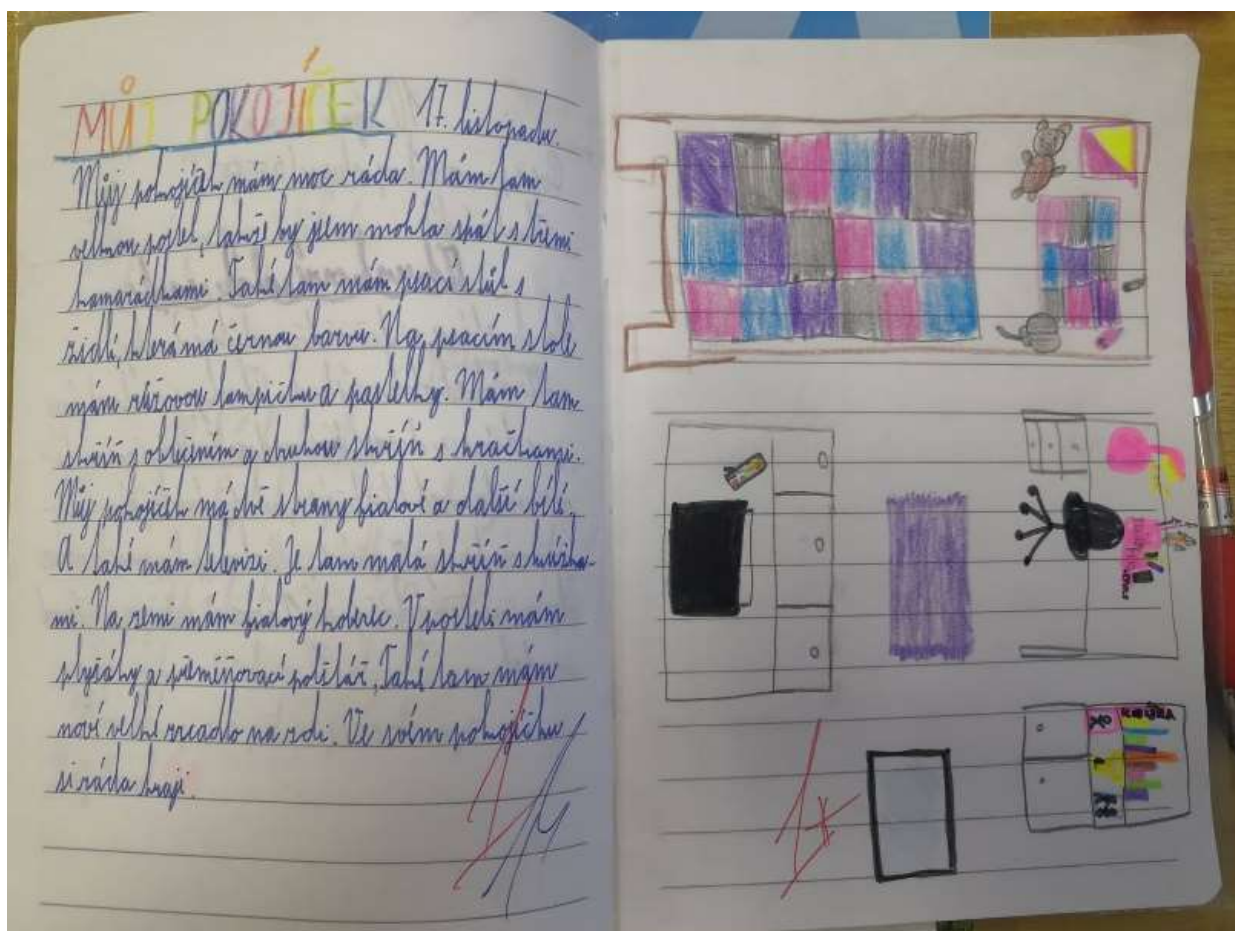 MŮJ POKOJÍČEK 17. listopadu.
Můj pokojíček mám moc ráda. Mám tam
velkou postel, takže by jsem mohla spát s třemi
kamarádkami. Také tam mám psací stůl s
židlí, která má černou barvu. Na psacím stole
mám růžovou lampičku a pastelky. Mám tam
skříň s oblečením a druhou skříň s hračkami.
Můj pokojíček má dvě strany fialové a další bílé.
A také mám televizi. Je tam malá skříň s knížka-
mi. Na zemi mám fialový koberec. V posteli mám
plyšáky a polštář. Také tam mám
nové velké zrcadlo na zdi. Ve svém pokojíčku
si ráda hraji.
1
1*
KNÍŽKA